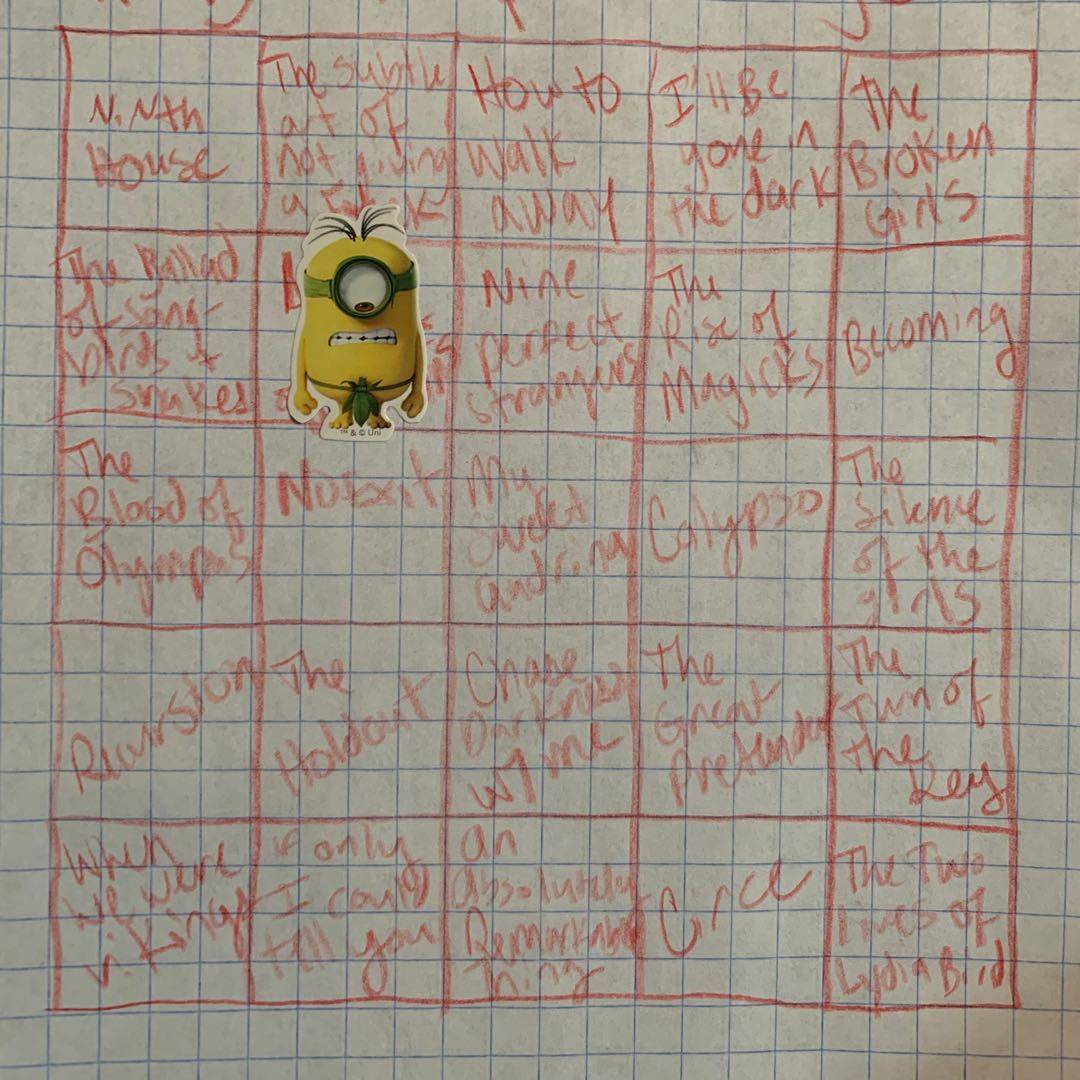 Ninth
House
The subtle
art of
not giving
a
How to
Walk
away
I'll Be
gone in
the dark
The
Broken
Girls
The Ballad
of song-
birds &
snakes
Nine
perfect
strangers
The
Rise of
Magicks
Becoming
The
Blood of
Olympus
No Exit
My
Sweet
audrina
Calypso
The
Silence
of the
girls
Recursion
The
Holdout
Chase
Darkness
w/ me
The
Great
Pretender
The
Turn of
the
Key
When
we were
vikings
if only
I could
tell you
an
absolutely
Remarkable
Thing
Circe
The Two
Lives of
Lydia Bird
™ & © Uni